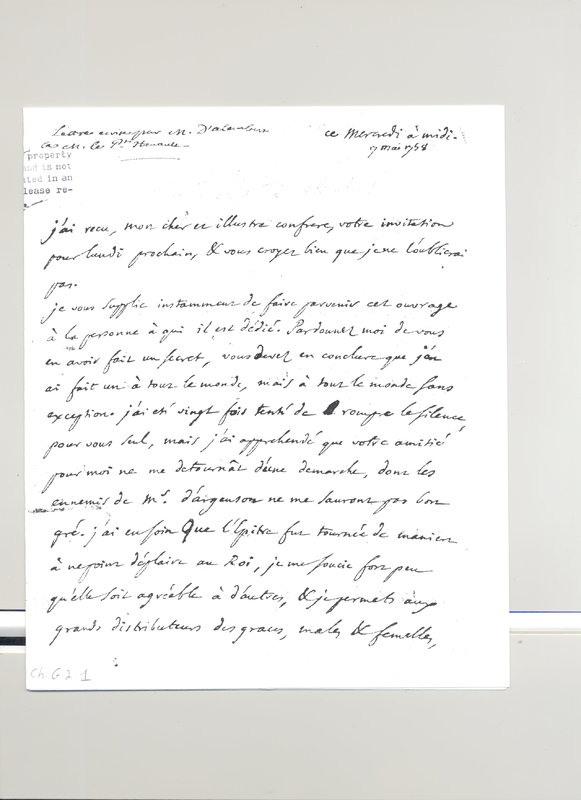 Lettre ecrite par M. D'alembert
ce Mercredi à midi.
à M. le Pdt Henault
17 mai 1758
property
and is not
ted in an
lease re-
j'ai recu, mon cher et illustre confrere, votre invitation
pour lundi prochain, & vous croyez bien que je ne l'oublierai
pas.
je vous supplie instamment de faire parvenir cet ouvrage
à la personne à qui il est dédié. Pardonnez moi de vous
en avoir fait un secret, vous devez en conclure que j'en
ai fait un à tout le monde, mais à tout le monde sans
exception. j'ai eté vingt fois tenté de rompre le silence
pour vous seul, mais j'ai apprehendé que votre amitié
pour moi ne me detournât d'une demarche, dont les
ennemis de Mr. d'argenson ne me sauront pas bon
gré. j'ai eu soin que l'Epitre fut tournée de maniere
à ne point déplaire au Roi, je me soucie fort peu
qu'elle soit agréable à d'autres, & je permets aux
grands distributeurs des graces, males & femelles,
Ch. G 2 1